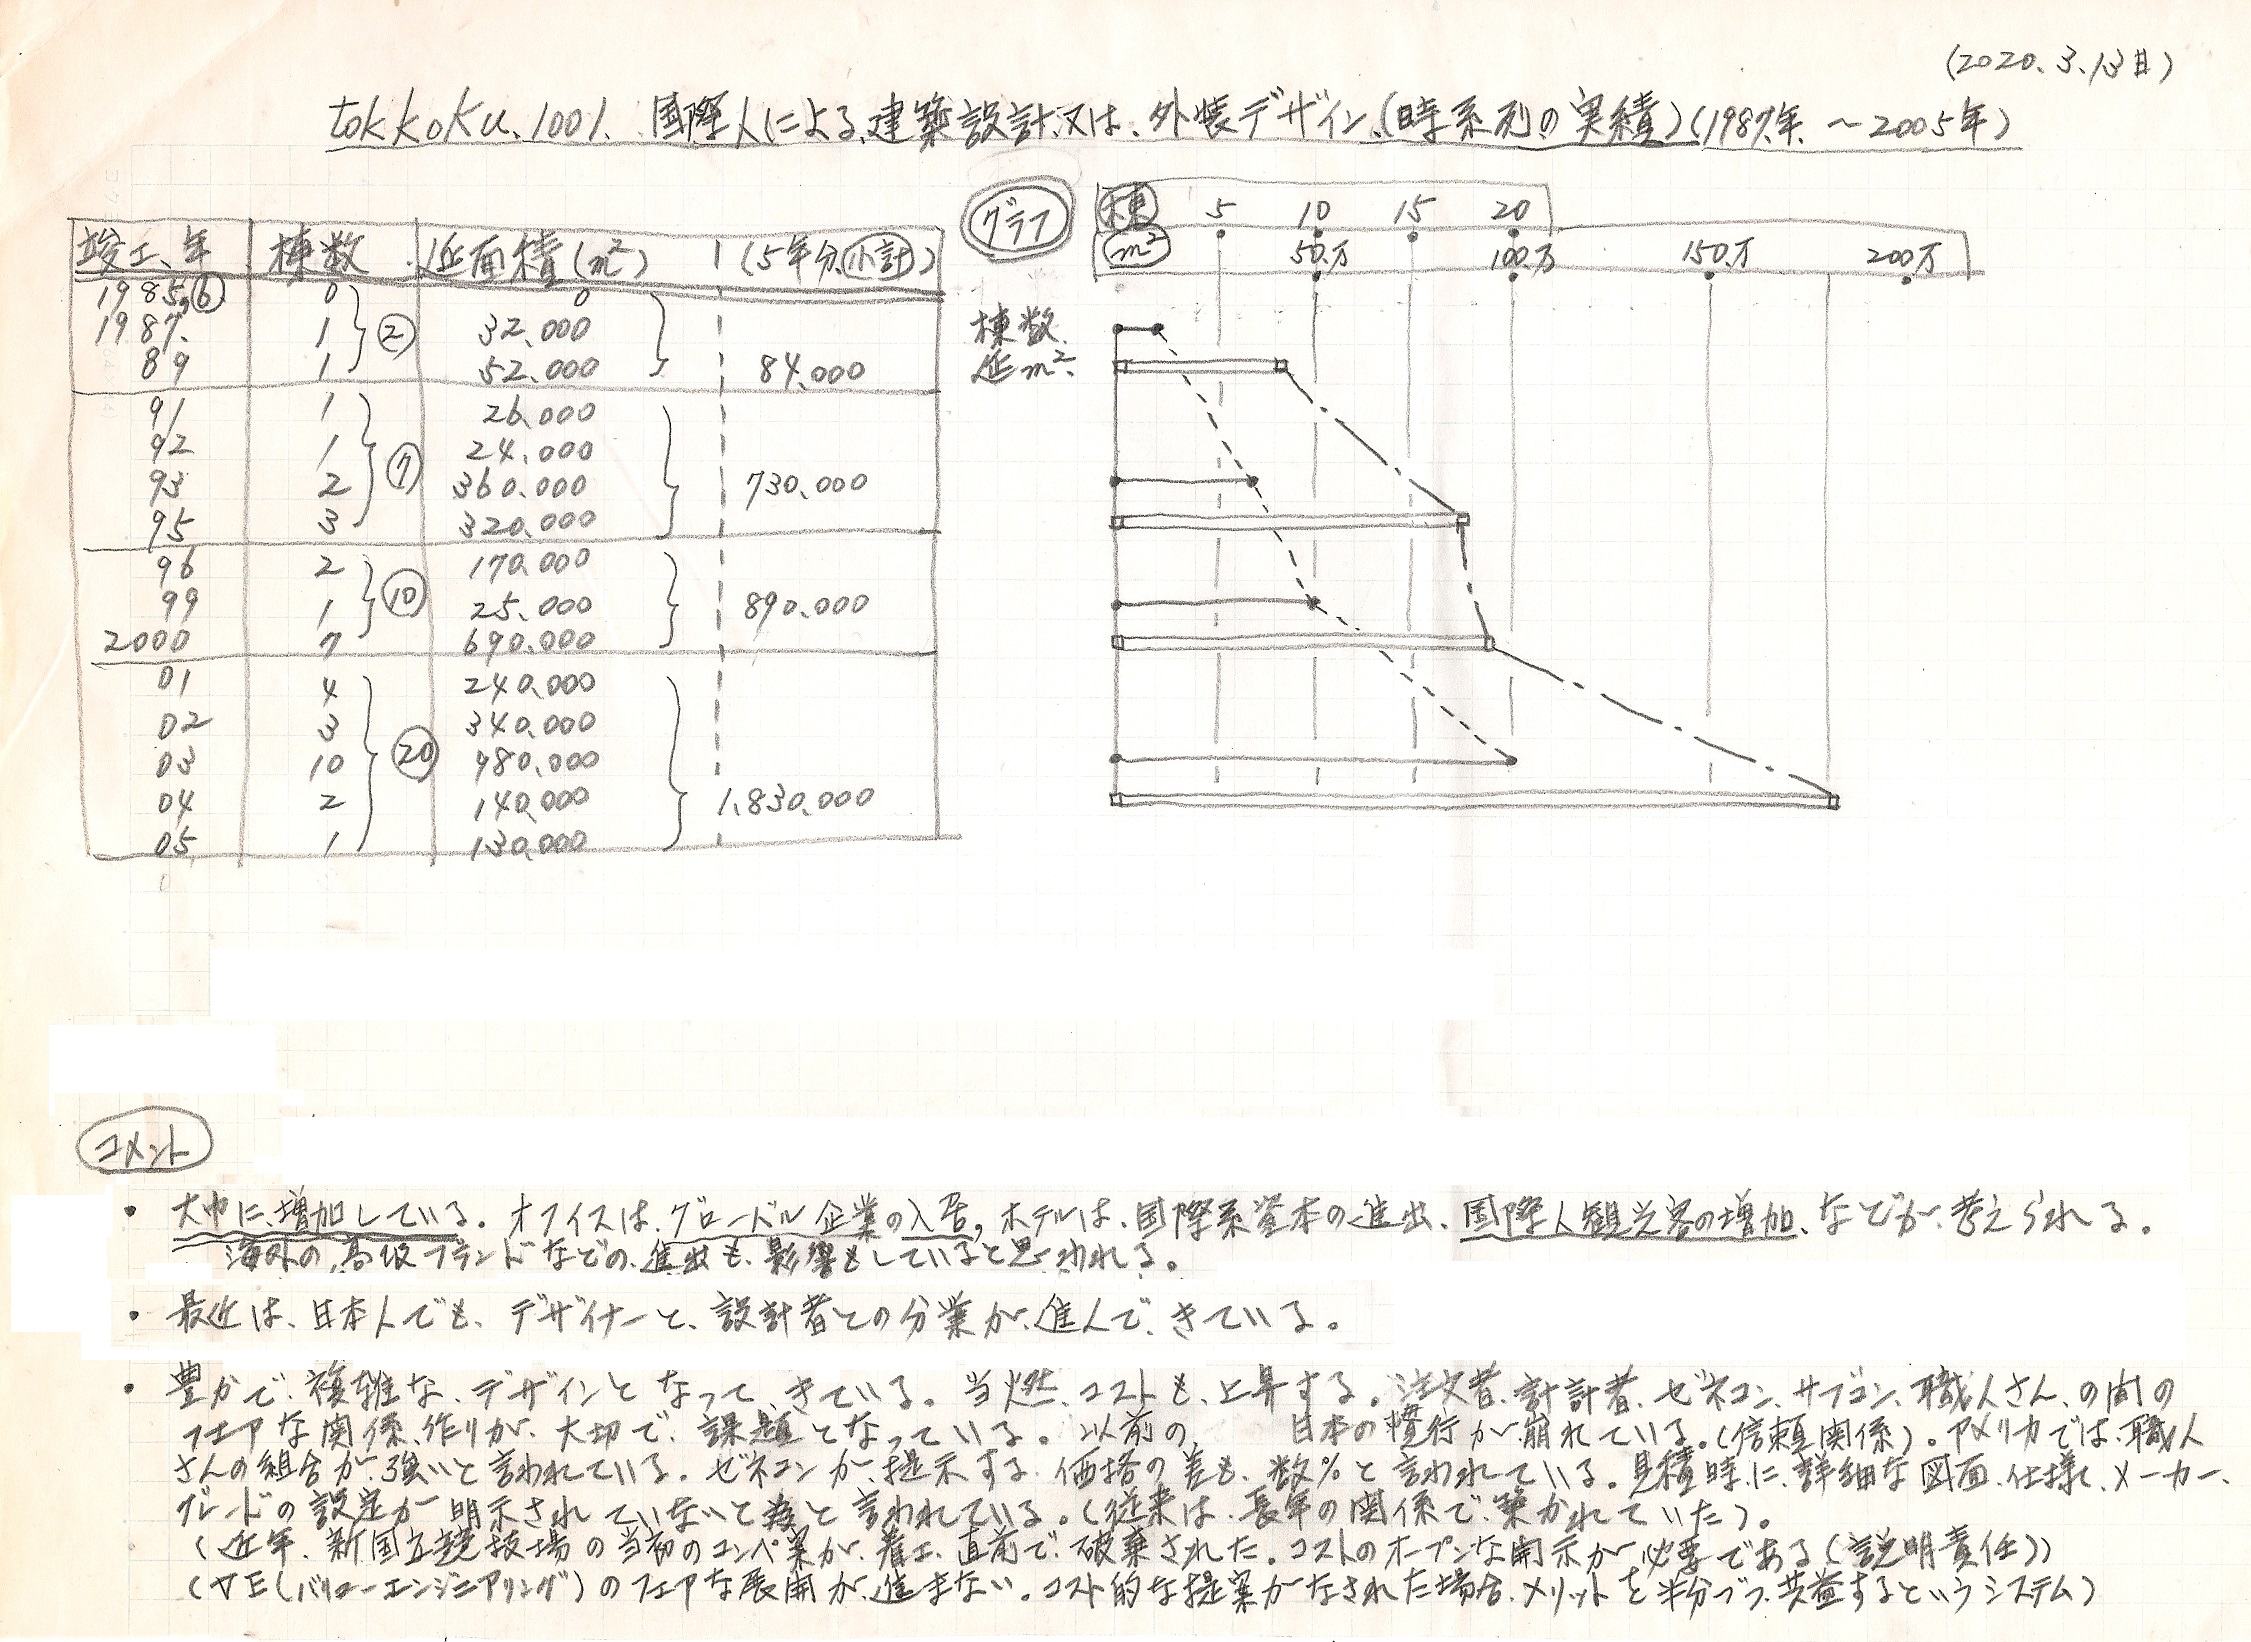 (2020.3.13日)
tokkoku.1001. 国際人による、建築設計、又は、外装デザイン、(時系列の実績)(1987.年. ～2005年)
グラフ
棟 5 10 15 20
m² 50.万 100.万 150.万 200万
竣工、年 棟数 延面積(m²) (5年分、小計)
1985,6 0 0
1987. 1 ② 32.000
89 1 52.000 84.000
91 1 26.000
92 1 24.000
93 2 ⑦ 360.000 730.000
95 3 320.000
96 2 170.000
99 1 ⑩ 25.000 890.000
2000 7 690.000
01 4 240.000
02 3 340.000
03 10 ⑳ 980.000
04 2 140.000 1.830.000
05 1 130.000
棟数.
延m².
コメント
・大巾に、増加している。オフィスは、グローバル企業の入居, ホテルは、国際系資本の進出、国際人観光客の増加、などが、考えられる。
海外の、高級ブランドなどの、進出も、影響もしていると思われる。
・最近は、日本人でも、デザイナーと、設計者との分業が、進んで、きている。
・豊かで、複雑な、デザインとなって、きている。当然、コストも、上昇する。注文者、計計者、ゼネコン、サブコン、職人さん、の間の
フェアな関係、作りが、大切で、課題となっている。以前の、 日本の慣行が、崩れている。(信頼関係)。アメリカでは、職人
さんの組合が、強いと言われている。ゼネコンが、提示する、価格の差も、数%と言われている。見積時、に、詳細な図面、仕様、メーカー、
グレードの設定が明示されていないと為と言われている。(従来は、長年の関係で、築かれていた)。
(近年、新国立競技場の当初のコンペ案が、着工、直前で、破棄された。コストのオープンな開示が必要である(説明責任))
(VE(バリューエンジニアリング)のフェアな展開が、進まない。コスト的な提案がなされた場合、メリットを半分づつ、共益するというシステム)